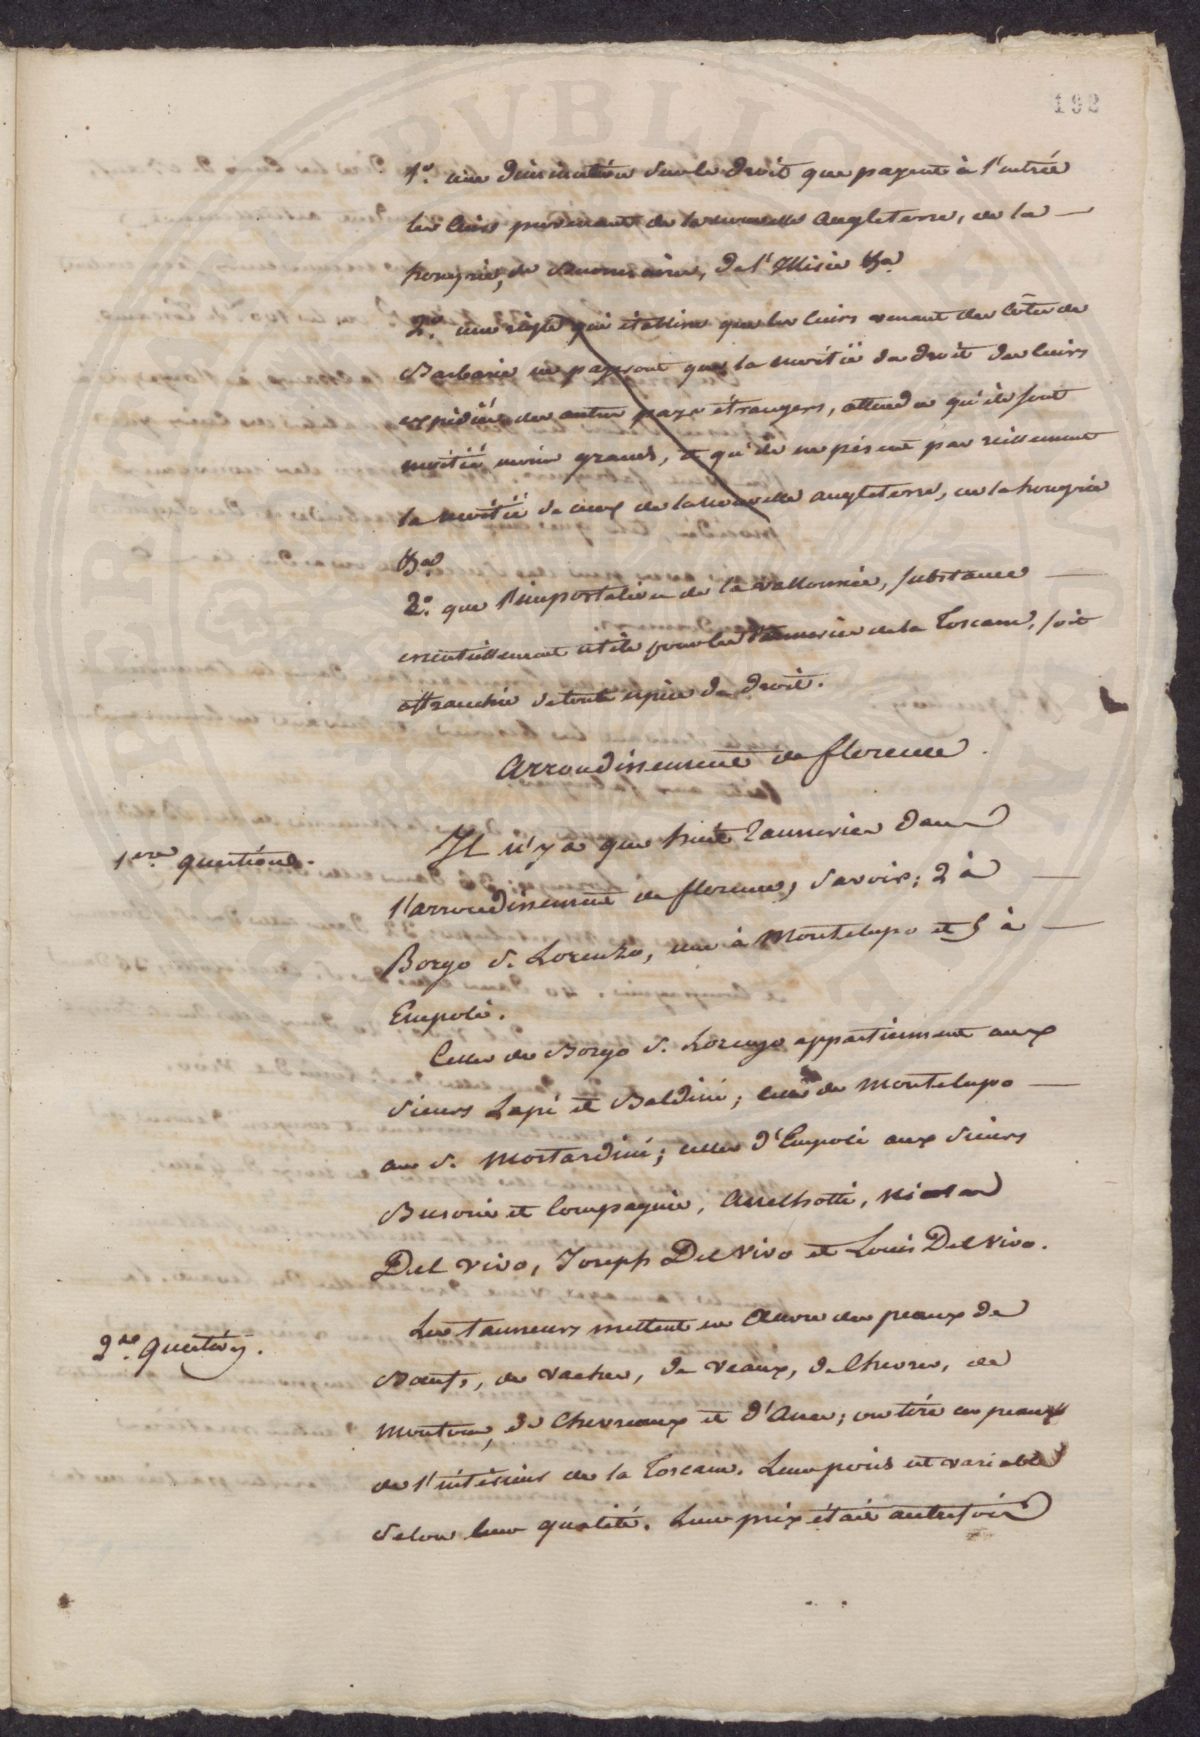 192
1.° une diminution sur le droit que payent à l'entrée
les Cuirs provenant de la nouvelle Angleterre, de la
hongrie, de Buenosaires, de l' &a
2.° une règle qui établisse que les Cuirs venant des Côtes de
Barbarie ne payeront que la moitié du droit des Cuirs
expédiés des autres pays étrangers, attendu qu'ils sont
moitié moins grands, et qu'ils ne pèsent pas réellement
la moitié de ceux de la nouvelle angleterre, de la hongrie
&a
2.° que l'importation de la vallonnée, substance
essentiellement utile pour les Tanneries de la Toscane, soit
affranchie de toute espèce de droit.
Arrondissement de florence.
1ere question.
Il n'y a que huit Tanneries dans
l'arrondissement de florence, Savoir; 2 à
Borgo S. Lorenzo, une à Montelupo et 5 à
Empoli.
Celles de Borgo S. Lorenzo appartiennent aux
Sieurs Lapi et Baldini; celle de Montelupo
au S. Mostardini; celles d'Empoli aux Sieurs
Busoni et Compagnie, , Nicolas
Del Vivo, Joseph Del Vivo et Louis Del Vivo.
2de. Question.
Les tanneurs mettent en Œuvre des peaux de
Bœufs, de vaches, de veaux, de Chevres, de
moutons, de Chevreaux et d'Anes; on tire ces peaux
de l'intérieur de la Toscane. Leur poids est variable
selon leur qualité. Leur prix était autrefois